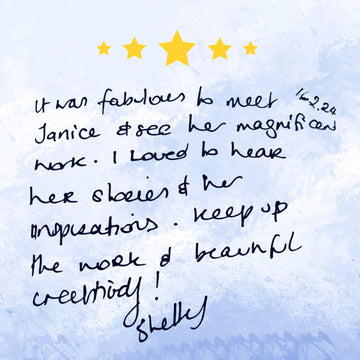 It was fabulous to meet 16.2.24
Janice & see her magnificent
work. I loved to hear
her stories & her
inspirations. Keep up
the work & beautiful
creativity!
Shelley